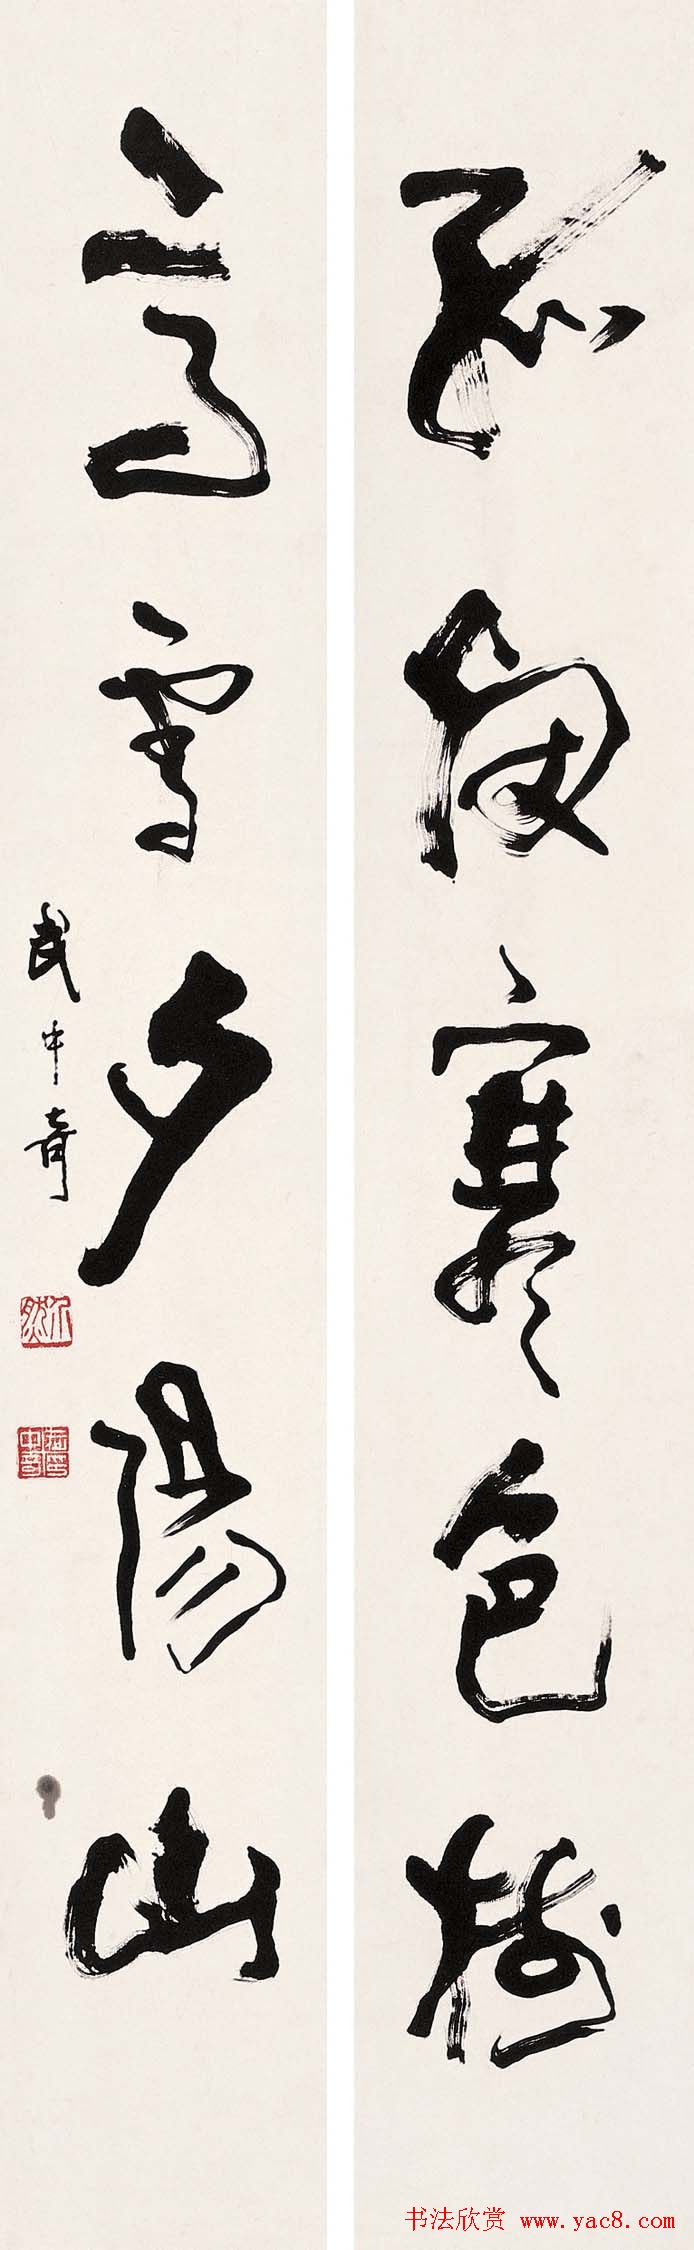 孤烟寒色树
高雪夕阳山
武中奇
书法欣赏 www.yac8.com